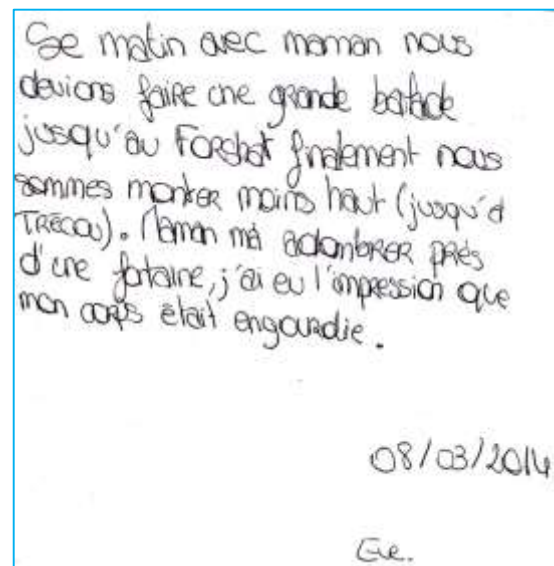 Se matin avec maman nous
devions faire une grande balade
jusqu'au Forchat finalement nous
sommes monter moins haut (jusqu'à
TRÉCOU). Maman m'a adombrer près
d'une fontaine, j'ai eu l'impression que
mon corps était engourdie.
08/03/2014
Eve.